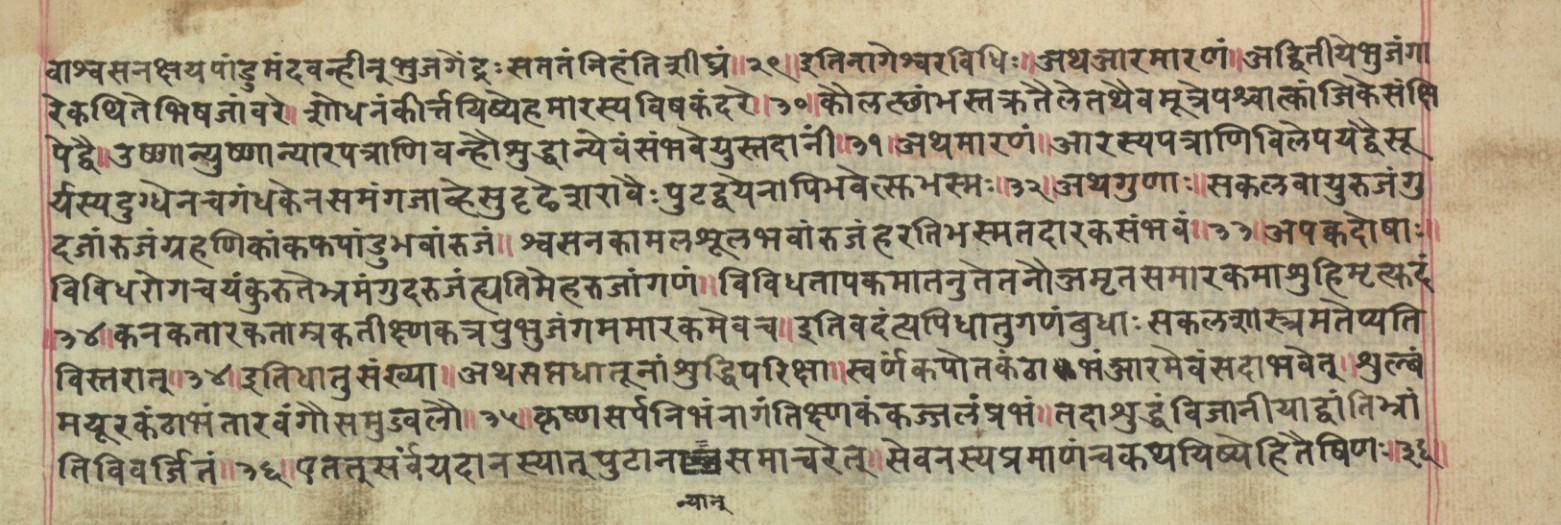 वाश्वसनक्षयपांडुमंदवन्हीन्भुजगेंद्रः सततंनिहंतिशीघ्रं॥२९॥इतिनागेश्वरविधिः॥अथआरमारणं॥अद्वितीयेभुजंगा
रेकथितेभिषजांवरे॥शोधनंकीर्त्तयिष्येहमारस्यविषकंदरे॥३०॥कौलत्छांभस्तक्रतैलेतथैवमूत्रेपश्चात्कांजिकेसंक्षि
पेद्वै॥उष्णान्युष्णान्यारपत्राणिवन्हौशुद्धान्येवंसंभवेयुस्तदानीं॥३१॥अथमारणं॥आरस्यपत्राणिविलेपयेद्वैसू
र्यस्यदुग्धेनचगंधकेनसमंगजाव्हेसुदृढेशरावैः पुटद्वयेनापिभवेत्सभस्मः॥३२॥अथगुणाः॥सकलवायुरुजंगु
दजांरुजंग्रहणिकांकफपांडुभवांरुजं॥श्वसनकामलशूलभवांरुजंहरतिभस्मतदारकसंभवं॥३३॥अपक्कदोषाः॥
विविधरोगचयंकुरुतेभ्रमंगुदरुजंत्यतिमेहरुजांगणं॥विविधतापकमातनुतेतनौअमृतसमारकमाशुहिमृत्प्रदं
॥३४॥कनकतारकताम्रकतीक्ष्णकत्रपुभुजंगममारकमेवच॥इतिवदंत्यपिधातुगणंबुधाः सकलशास्त्रमतेप्यति
विस्तरात्॥३४॥इतिधातुसंख्या॥अथसप्तधातूनांशुद्धिपरिक्षा॥स्वर्णकपोतकंठाभंआरमेवंसदाभवेत्॥शुल्बं
मयूरकंठाभंतारवंगौसमुज्वलौ॥३५॥कृष्णसर्पनिभंनागंतिक्ष्णकंकज्जलंप्रभं॥तदाशुद्धंविजानीयाद्वांतिभ्रां
तिविवर्जितं॥३६॥एतत्सर्वंयदानस्यात्पुटानसमाचरेत्॥सेवनस्यप्रमाणंचकथयिष्येहितैषिणः॥३६॥
न्यान्